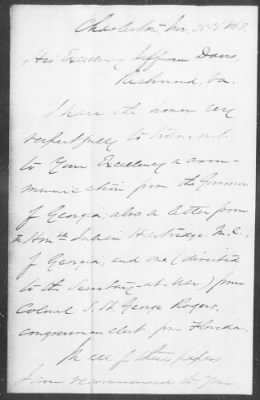 Charleston Nov. 1863.
His Excellency Jefferson Davis
Richmond, Va.
I have the honor very
respectfully to transmit
to Your Excellency a com-
munication from the Governor
of Georgia; also a letter from
the Hon. Julian Hartridge, M.C.,
of Georgia, and one (directed
to the Secretary of War) from
Colonel S. St George Rogers,
congressman elect from Florida.
In all of these papers
I am recommended to you